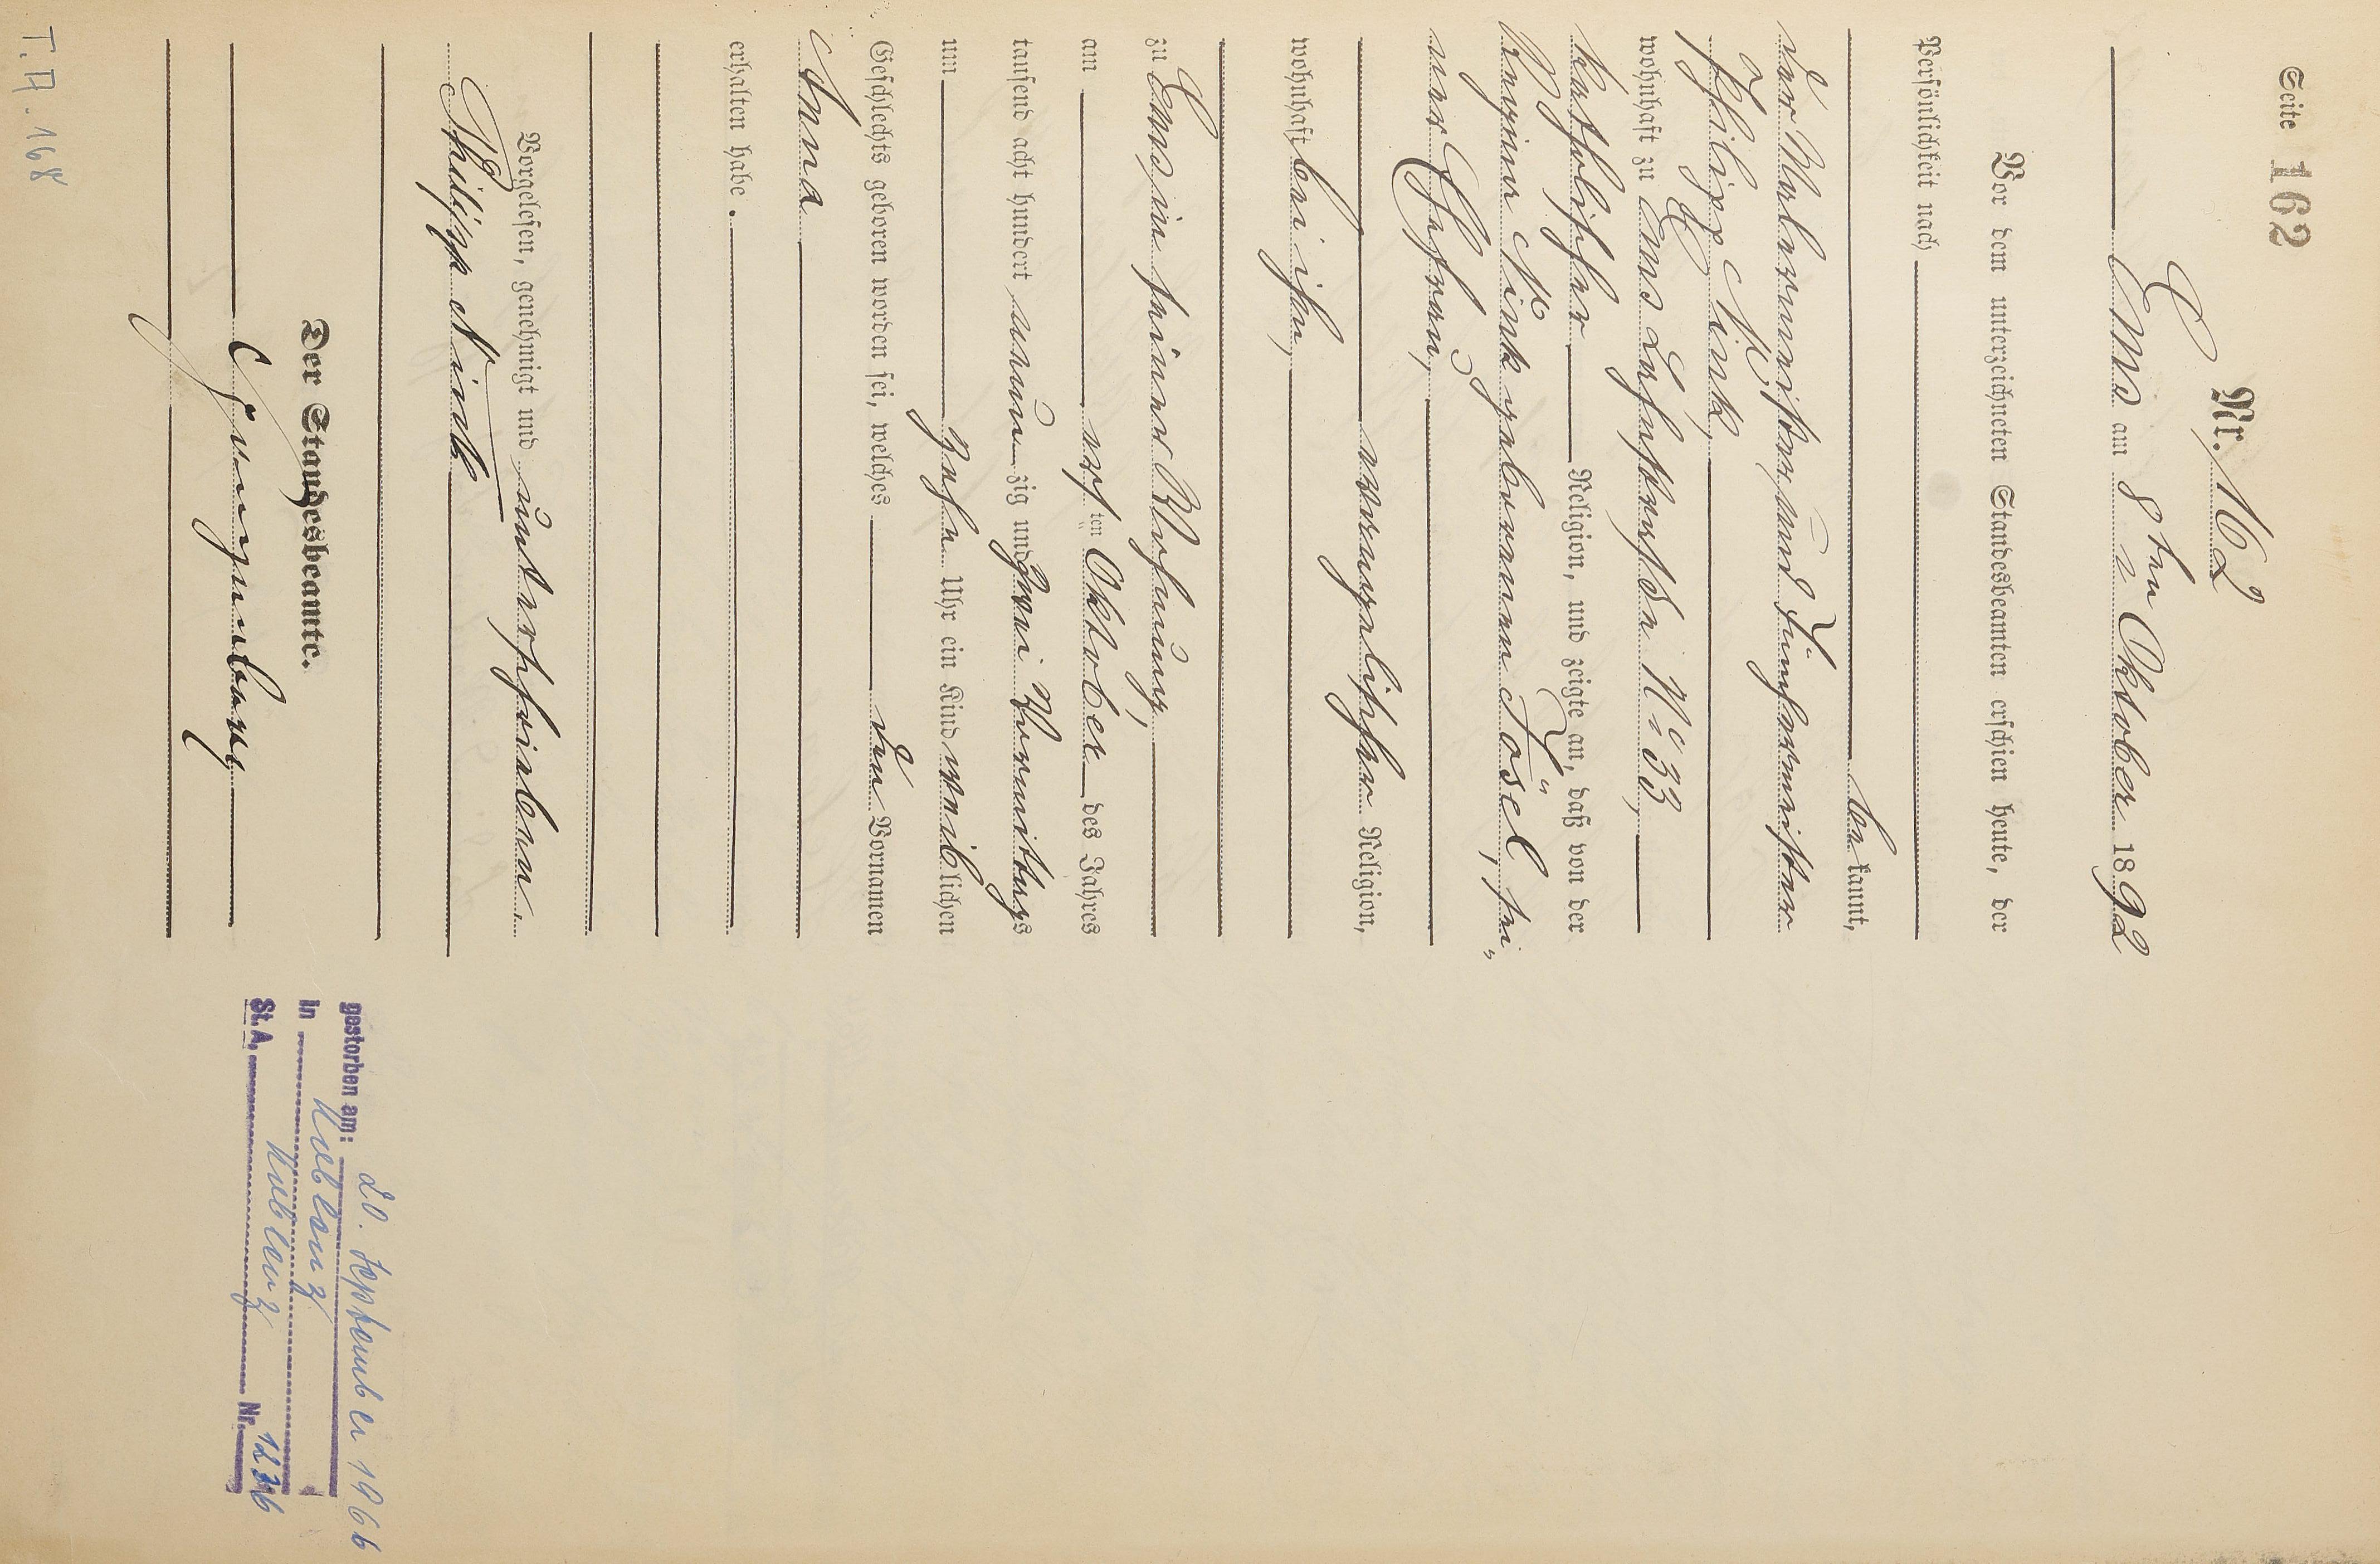 Seite 162
Nr. 162
Ems am 8ten Oktober 1892
Vor dem unterzeichneten Standesbeamten erschien heute, der
Persönlichkeit nach
bekannt,
der Malermeister und Tünchermeister
Philipp Nink,
wohnhaft zu Ems Lahnstraße No 33,
katholischer Religion, und zeigte an, daß von der
Regina Nink geborenen Fösel, sei-
ner Ehefrau,
evangelischer Religion,
wohnhaft bei ihm,
zu Ems in seiner Wohnung,
am ten Oktober des Jahres
tausend acht hundert neunzig und zwei Vormittags
um zehn Uhr ein Kind weiblichen
Geschlechts geboren worden sei, welches den Vornamen
Anna
erhalten habe.
Vorgelesen, genehmigt und unterschrieben.
Philipp Nink
Der Standesbeamte.
gestorben am: 20. September 1966
in Koblenz
St. A. Koblenz Nr. 1236
T. A. 168